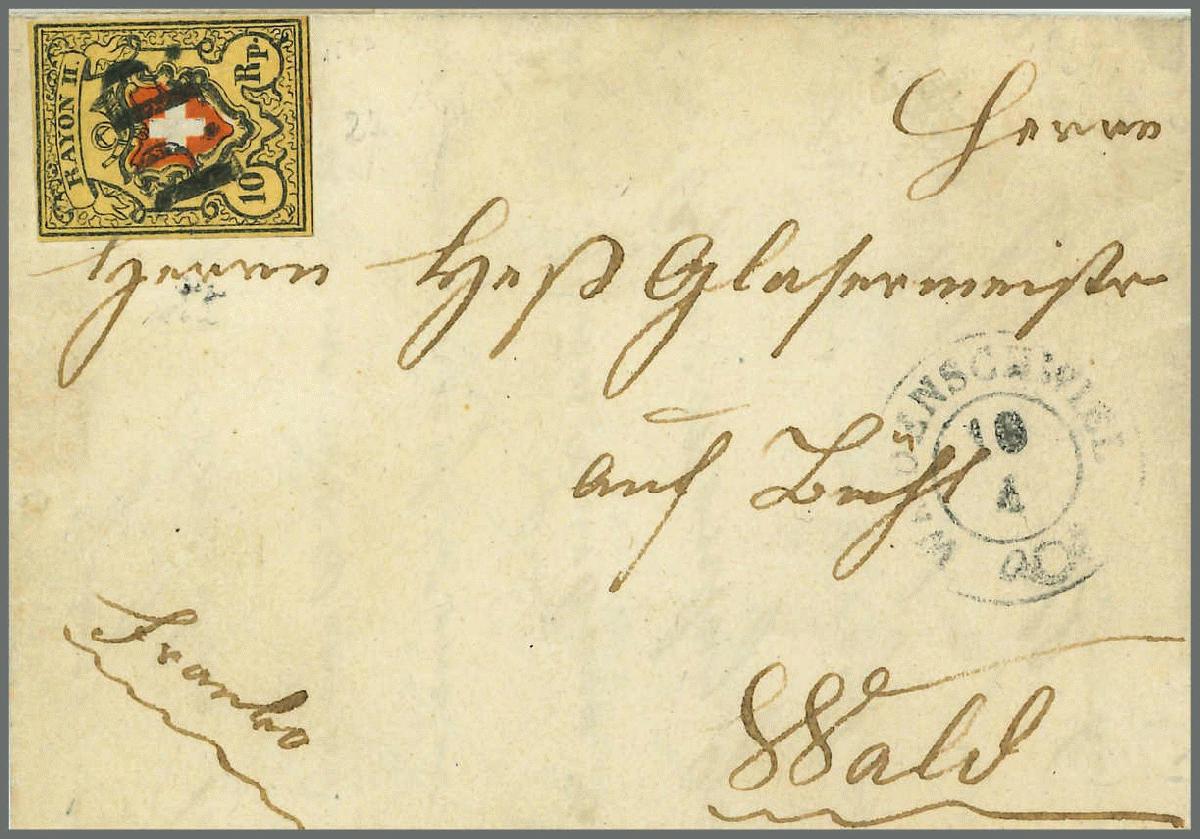 RAYON II.
10 Rp.
Herrn
Herrn Heß Glasermeistr
auf
WÆDENSCHWEIL
10
A
Franko
Wald